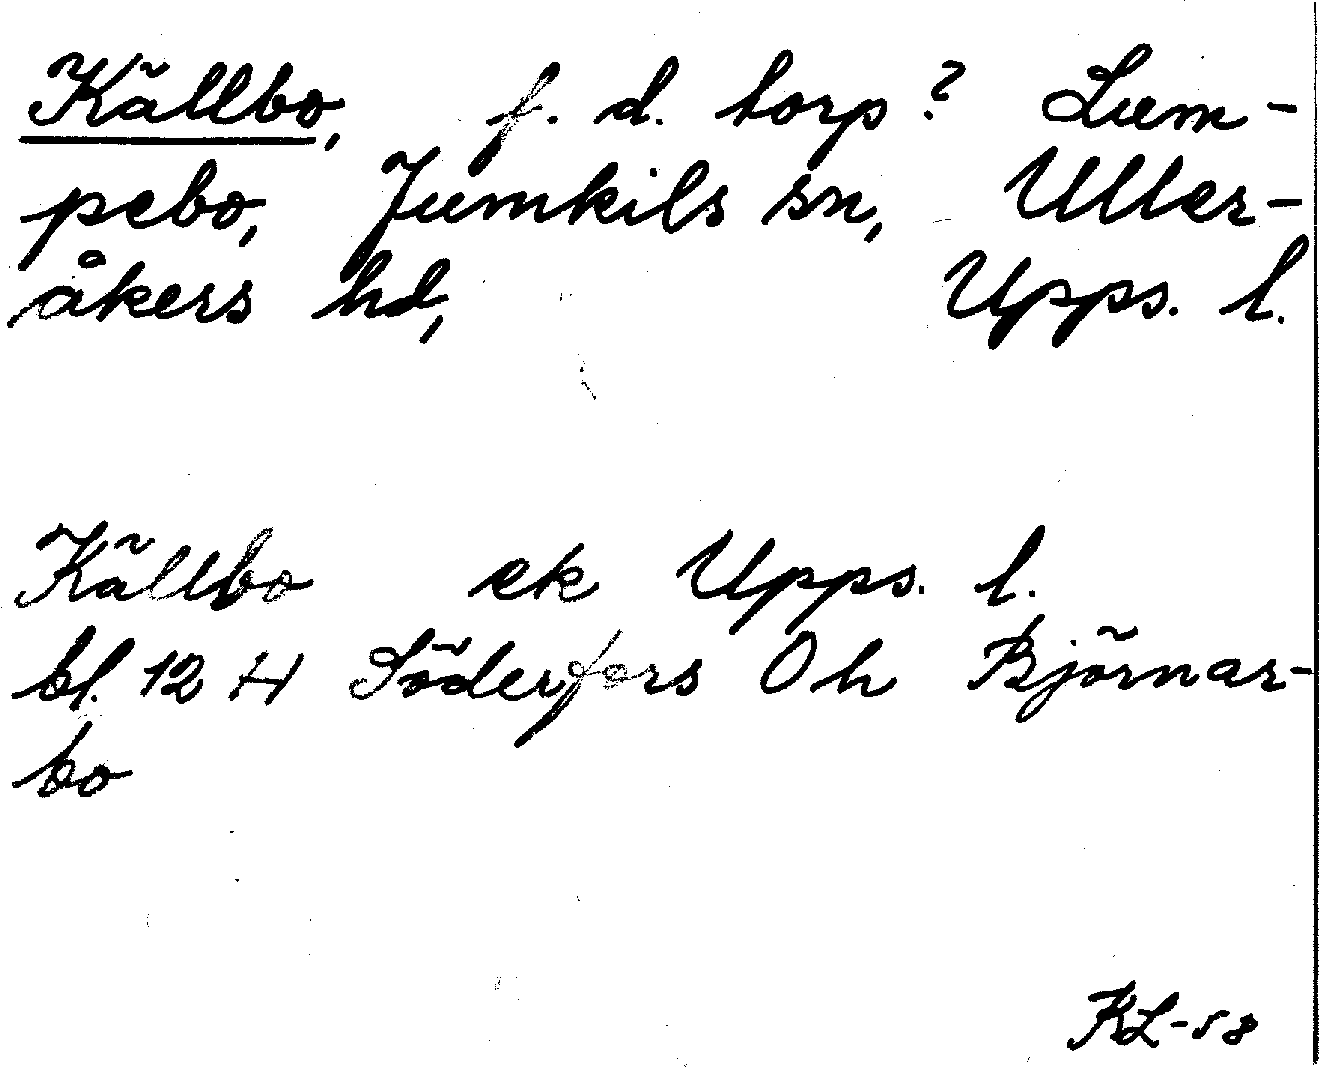 Källbo, f. d. torp? Lum-
pebo, Jumkils sn, Uller-
åkers hd, Upps. l.
Källbo ek Upps. l.
bl. 12 H Söderfors Oh Björnar-
bo
KL-58